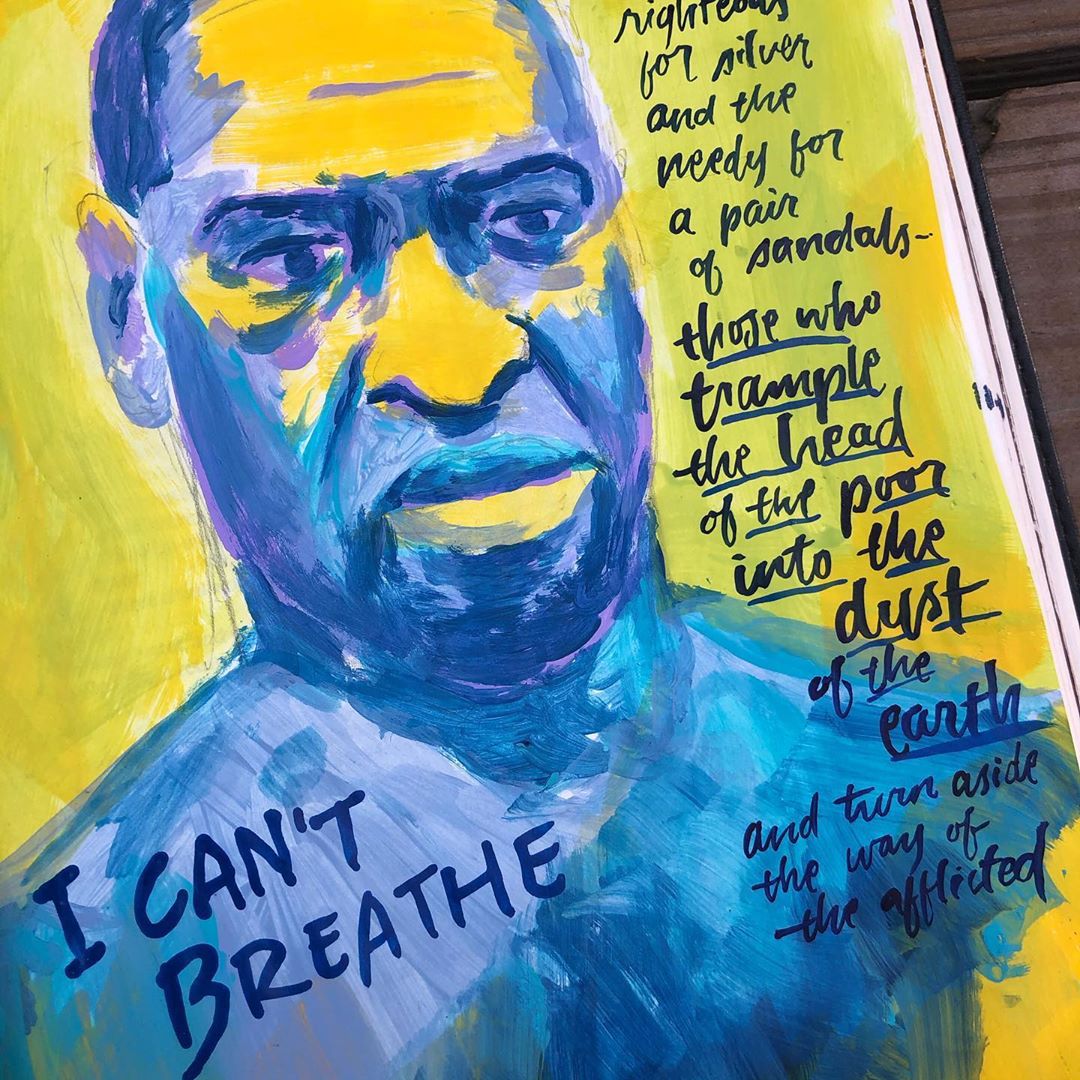 righteous
for silver
and the
needy for
a pair
of sandals-
those who
trample
the head
of the poor
into the
dust
of the
earth
and turn aside
the way of
the afflicted
I CAN'T
BREATHE